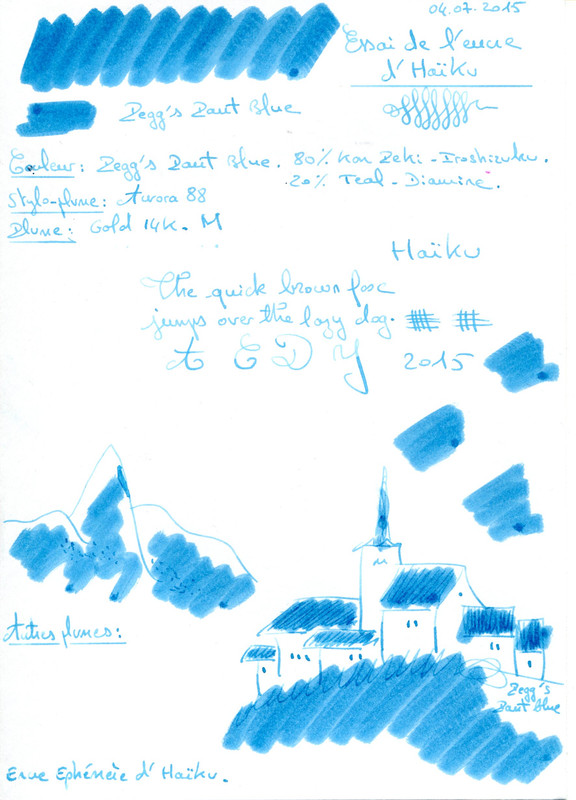 04.07.2015
Essai de l'encre
d'Haïku
Zegg's Daut Blue
Couleur: Zegg's Daut Blue. 80% Kon Peki - Iroshizuku.
20% Teal - Diamine.
Stylo-plume: Aurora 88
Plume: Gold 14K. M
Haïku
The quick brown fox
jumps over the lazy dog.
A E D Y 2015
Autres plumes:
Zegg's
Daut Blue
Encre Ephémère d'Haïku.